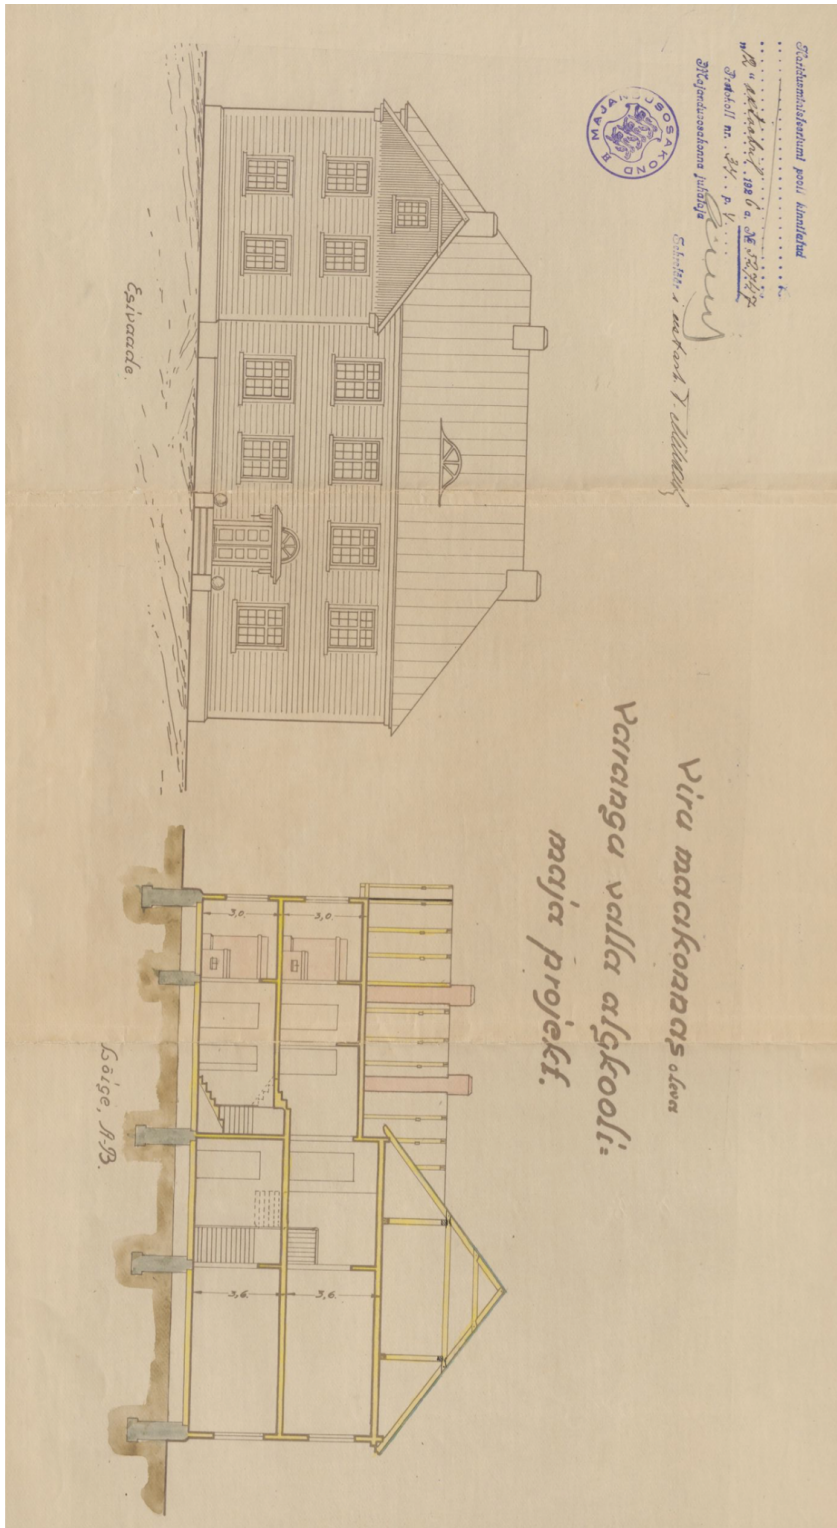 Haridusministeeriumi poolt kinnitatud
"12" oktoobril 1926 a. №
Protokoll nr. 34 p. V
Majandusosakonna juhataja
MAJANDUSOSAKOND
Viru maakonnas oleva
Varanga valla algkooli=
maja projekt.
Esivaade.
3,0. 3,0.
3,6. 3,6.
Lõige, A-B.